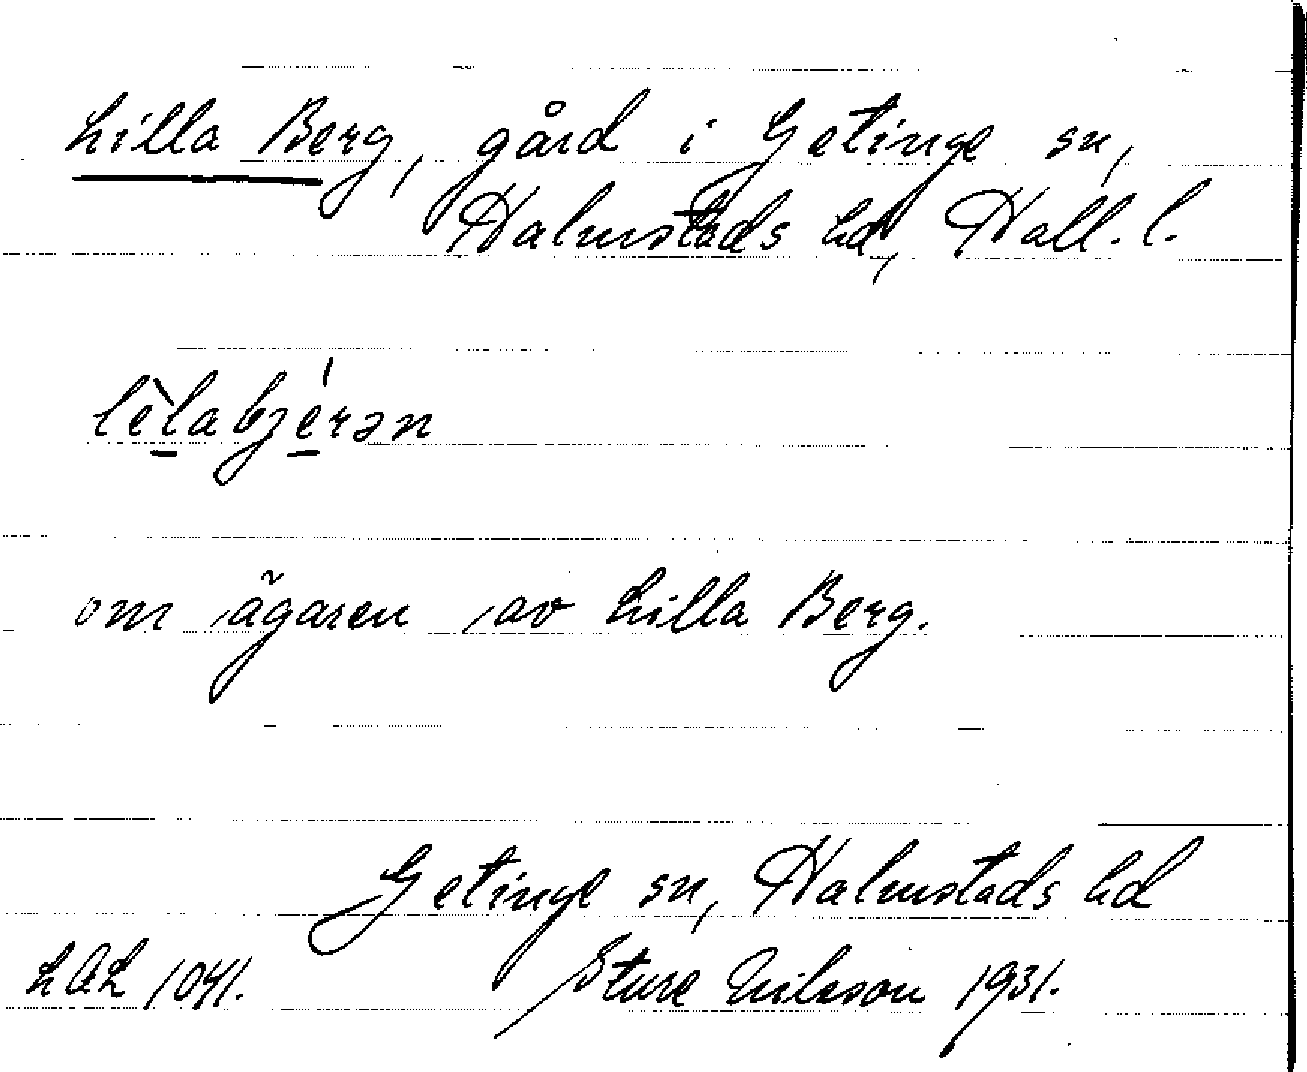 Lilla Berg, gård i Getinge sn,
Halmstads hd, Hall. l.
lèlabjérən
om ägaren av Lilla Berg.
Getinge sn, Halmstads hd
LAL 1041. Sture Nilsson 1931.